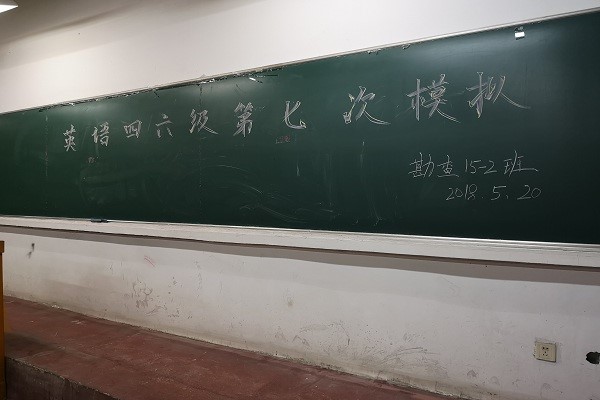 英语四六级第七次模拟
勘查15-2班
2018.5.20